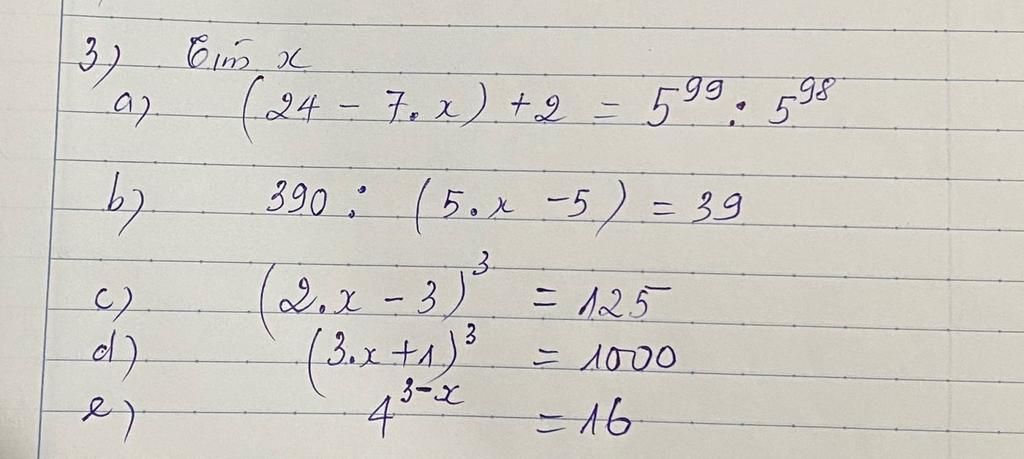 3) Tìm x
a) (24 - 7.x) + 2 = 5⁹⁹ : 5⁹⁸
b) 390 : (5.x - 5) = 39
c) (2.x - 3)³ = 125
d) (3.x + 1)³ = 1000
e) 4³⁻ˣ = 16